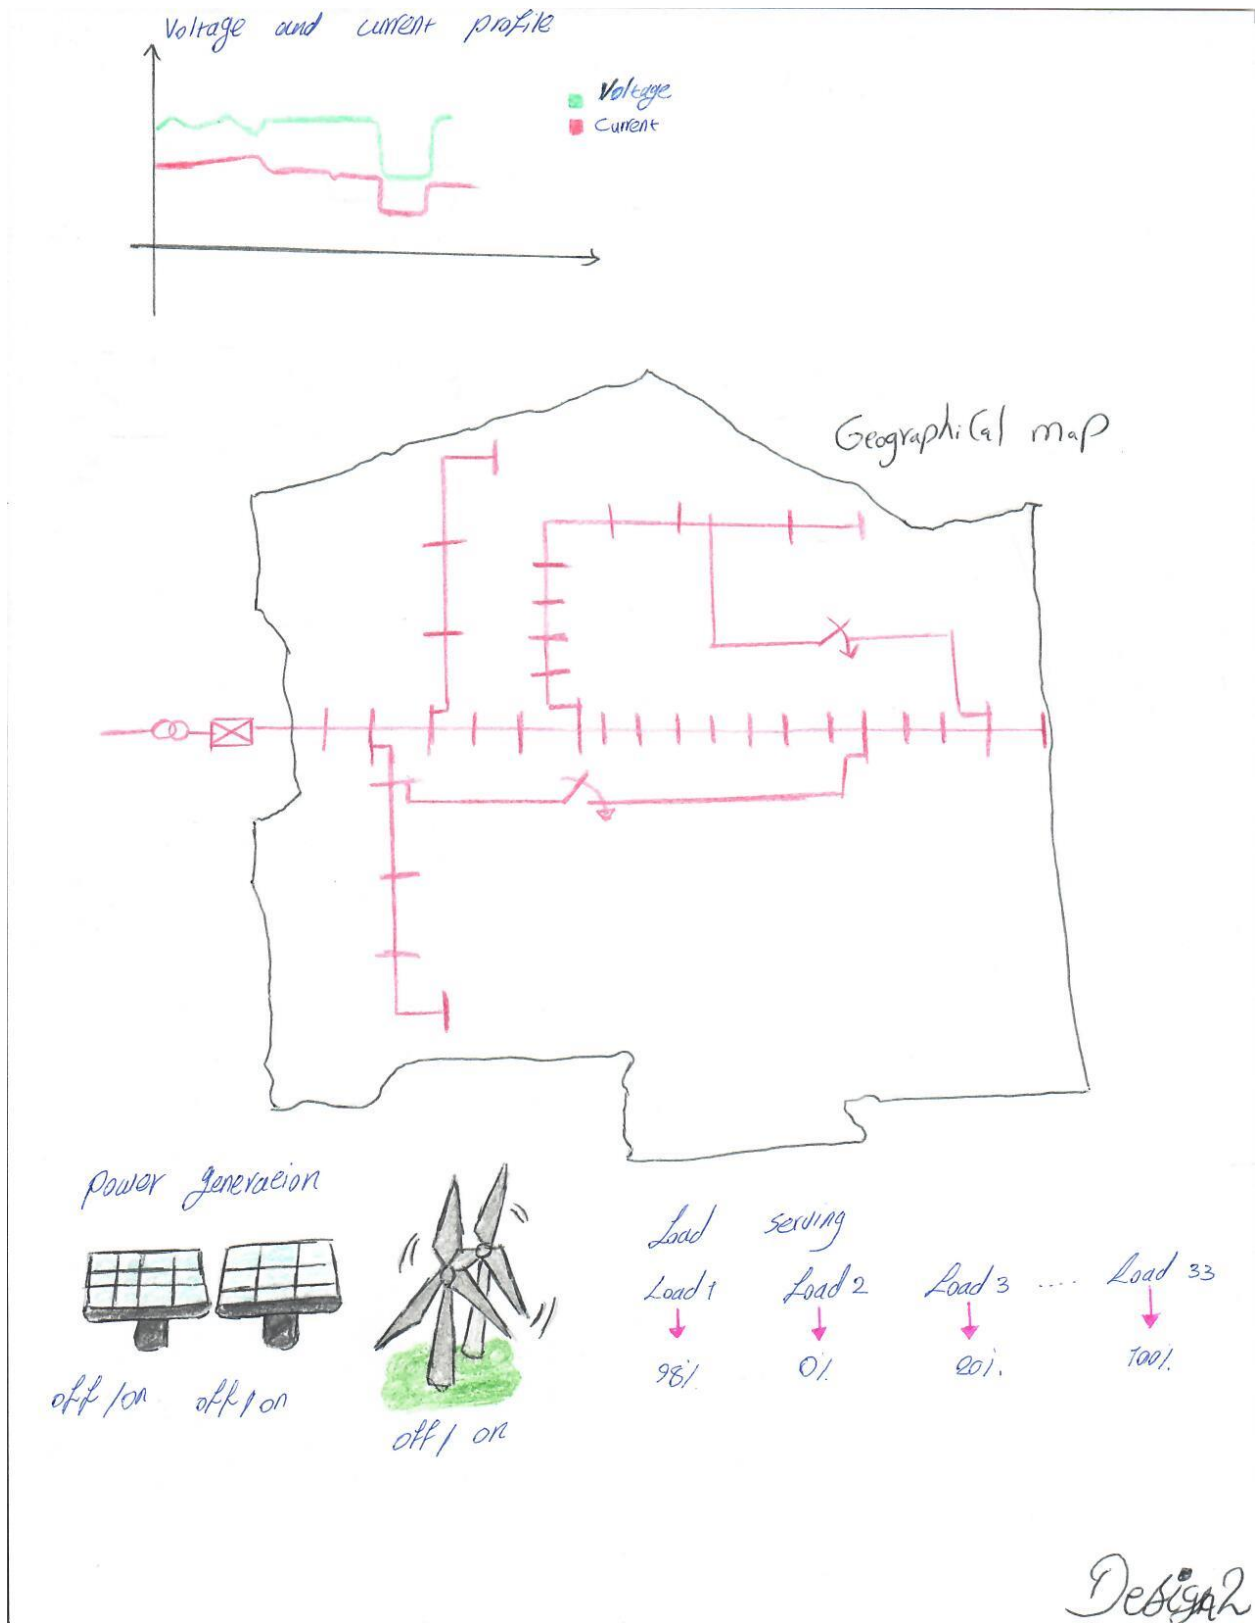 Voltage and current profile
Voltage
Current
Geographical map
Power generaeion
off / on off / on
off / on
Load serving
Load 1 Load 2 Load 3 .... Load 33
98% 0% 20% 100%
Design 2